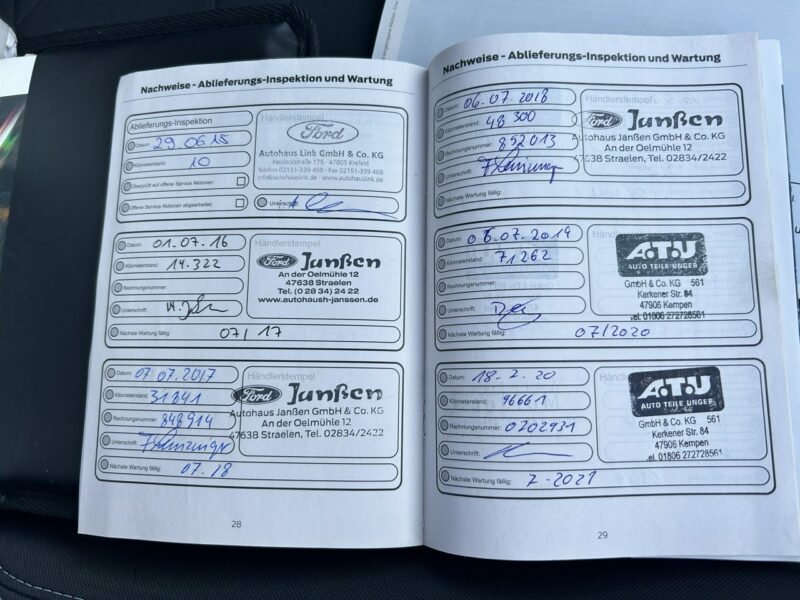 Nachweise - Ablieferungs-Inspektion und Wartung
Ablieferungs-Inspektion
Datum: 29.06.15
Kilometerstand: 10
Überprüft auf offene Service Aktionen:
Offene Service Aktionen abgearbeitet:
Händlerstempel
Ford
Autohaus Link GmbH & Co. KG
Heideckstraße 175 · 47805 Krefeld
Telefon 02151-339 450 · Fax 02151-339 466
info@autohauslink.de · www.autohauslink.de
Unterschrift:
Datum: 01.07.16
Kilometerstand: 14.322
Rechnungsnummer:
Unterschrift:
Händlerstempel
Ford Janßen
An der Oelmühle 12
47638 Straelen
Tel. (0 28 34) 24 22
www.autohaush-janssen.de
Nächste Wartung fällig: 07/17
Datum: 07.07.2017
Kilometerstand: 31841
Rechnungsnummer: 848914
Unterschrift:
Händlerstempel
Ford Janßen
Autohaus Janßen GmbH & Co. KG
An der Oelmühle 12
47638 Straelen, Tel. 02834/2422
Nächste Wartung fällig: 07.18
28
Nachweise - Ablieferungs-Inspektion und Wartung
Datum: 06.07.2018
Kilometerstand: 48300
Rechnungsnummer: 852013
Unterschrift:
Händlerstempel
Ford Janßen
Autohaus Janßen GmbH & Co. KG
An der Oelmühle 12
47638 Straelen, Tel. 02834/2422
Nächste Wartung fällig:
Datum: 06.07.2019
Kilometerstand: 71262
Rechnungsnummer:
Unterschrift:
A.T.U
AUTO TEILE UNGER
GmbH & Co. KG 561
Kerkener Str. 84
47906 Kempen
el. 01806 272728561
Nächste Wartung fällig: 07/2020
Datum: 18-7.20
Kilometerstand: 96661
Rechnungsnummer: 0202931
Unterschrift:
A.T.U
AUTO TEILE UNGER
GmbH & Co. KG 561
Kerkener Str. 84
47906 Kempen
el. 01806 272728561
Nächste Wartung fällig: 7-2021
29